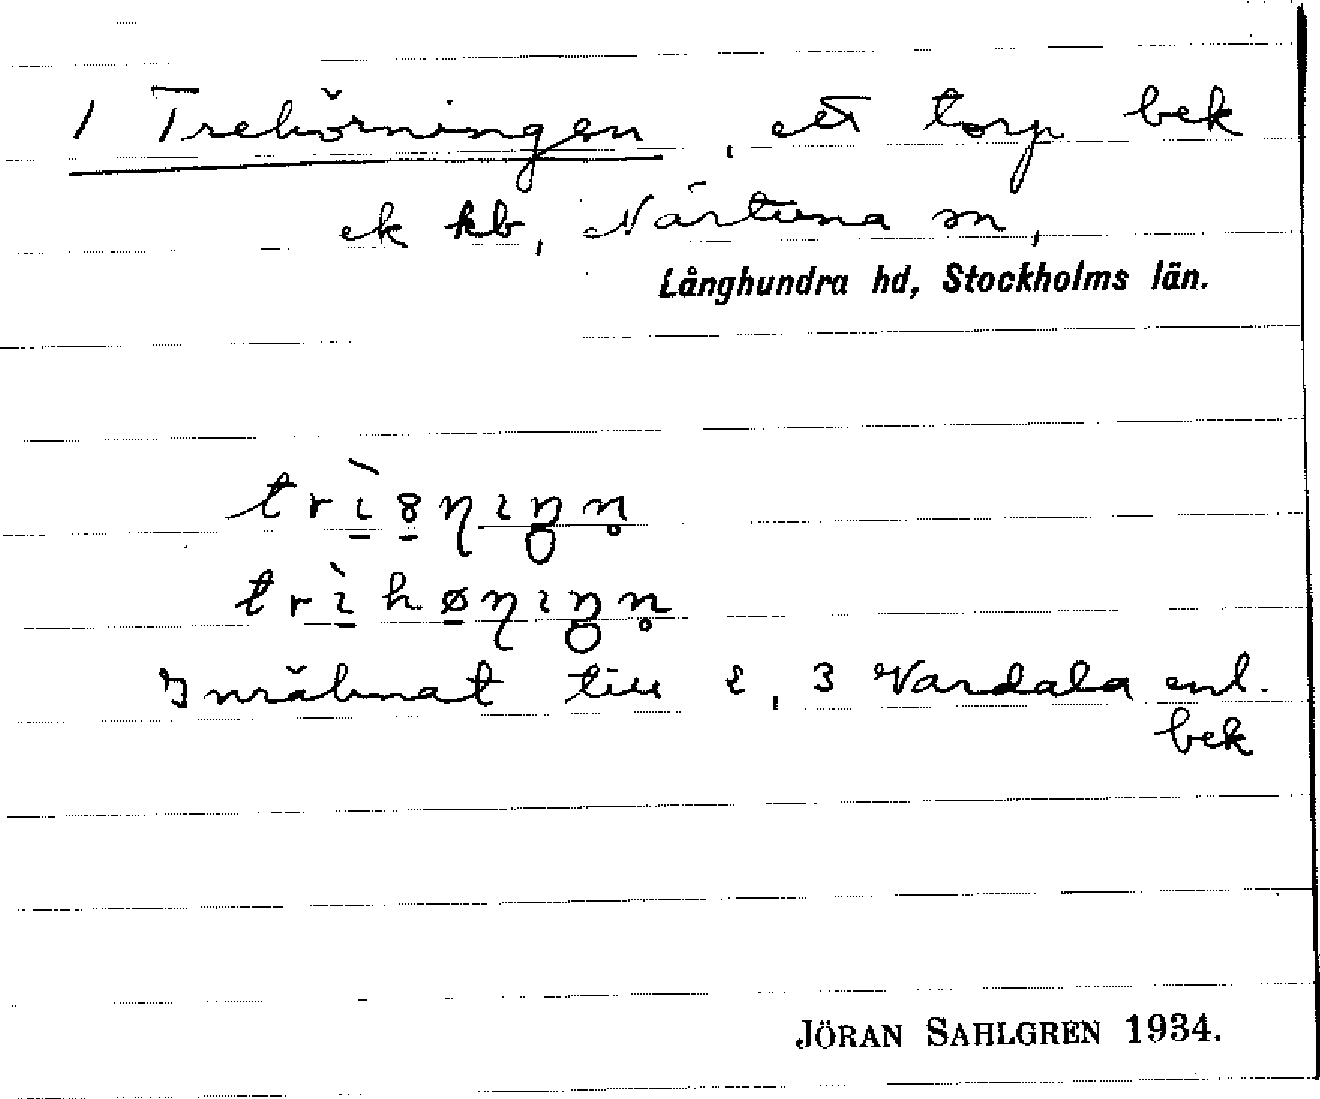 1 Trehörningen, ett torp bek
ek kb, Närtuna sn,
Långhundra hd, Stockholms län.
Inräknat till 2, 3 Vardala enl.
bek
JÖRAN SAHLGREN 1934.